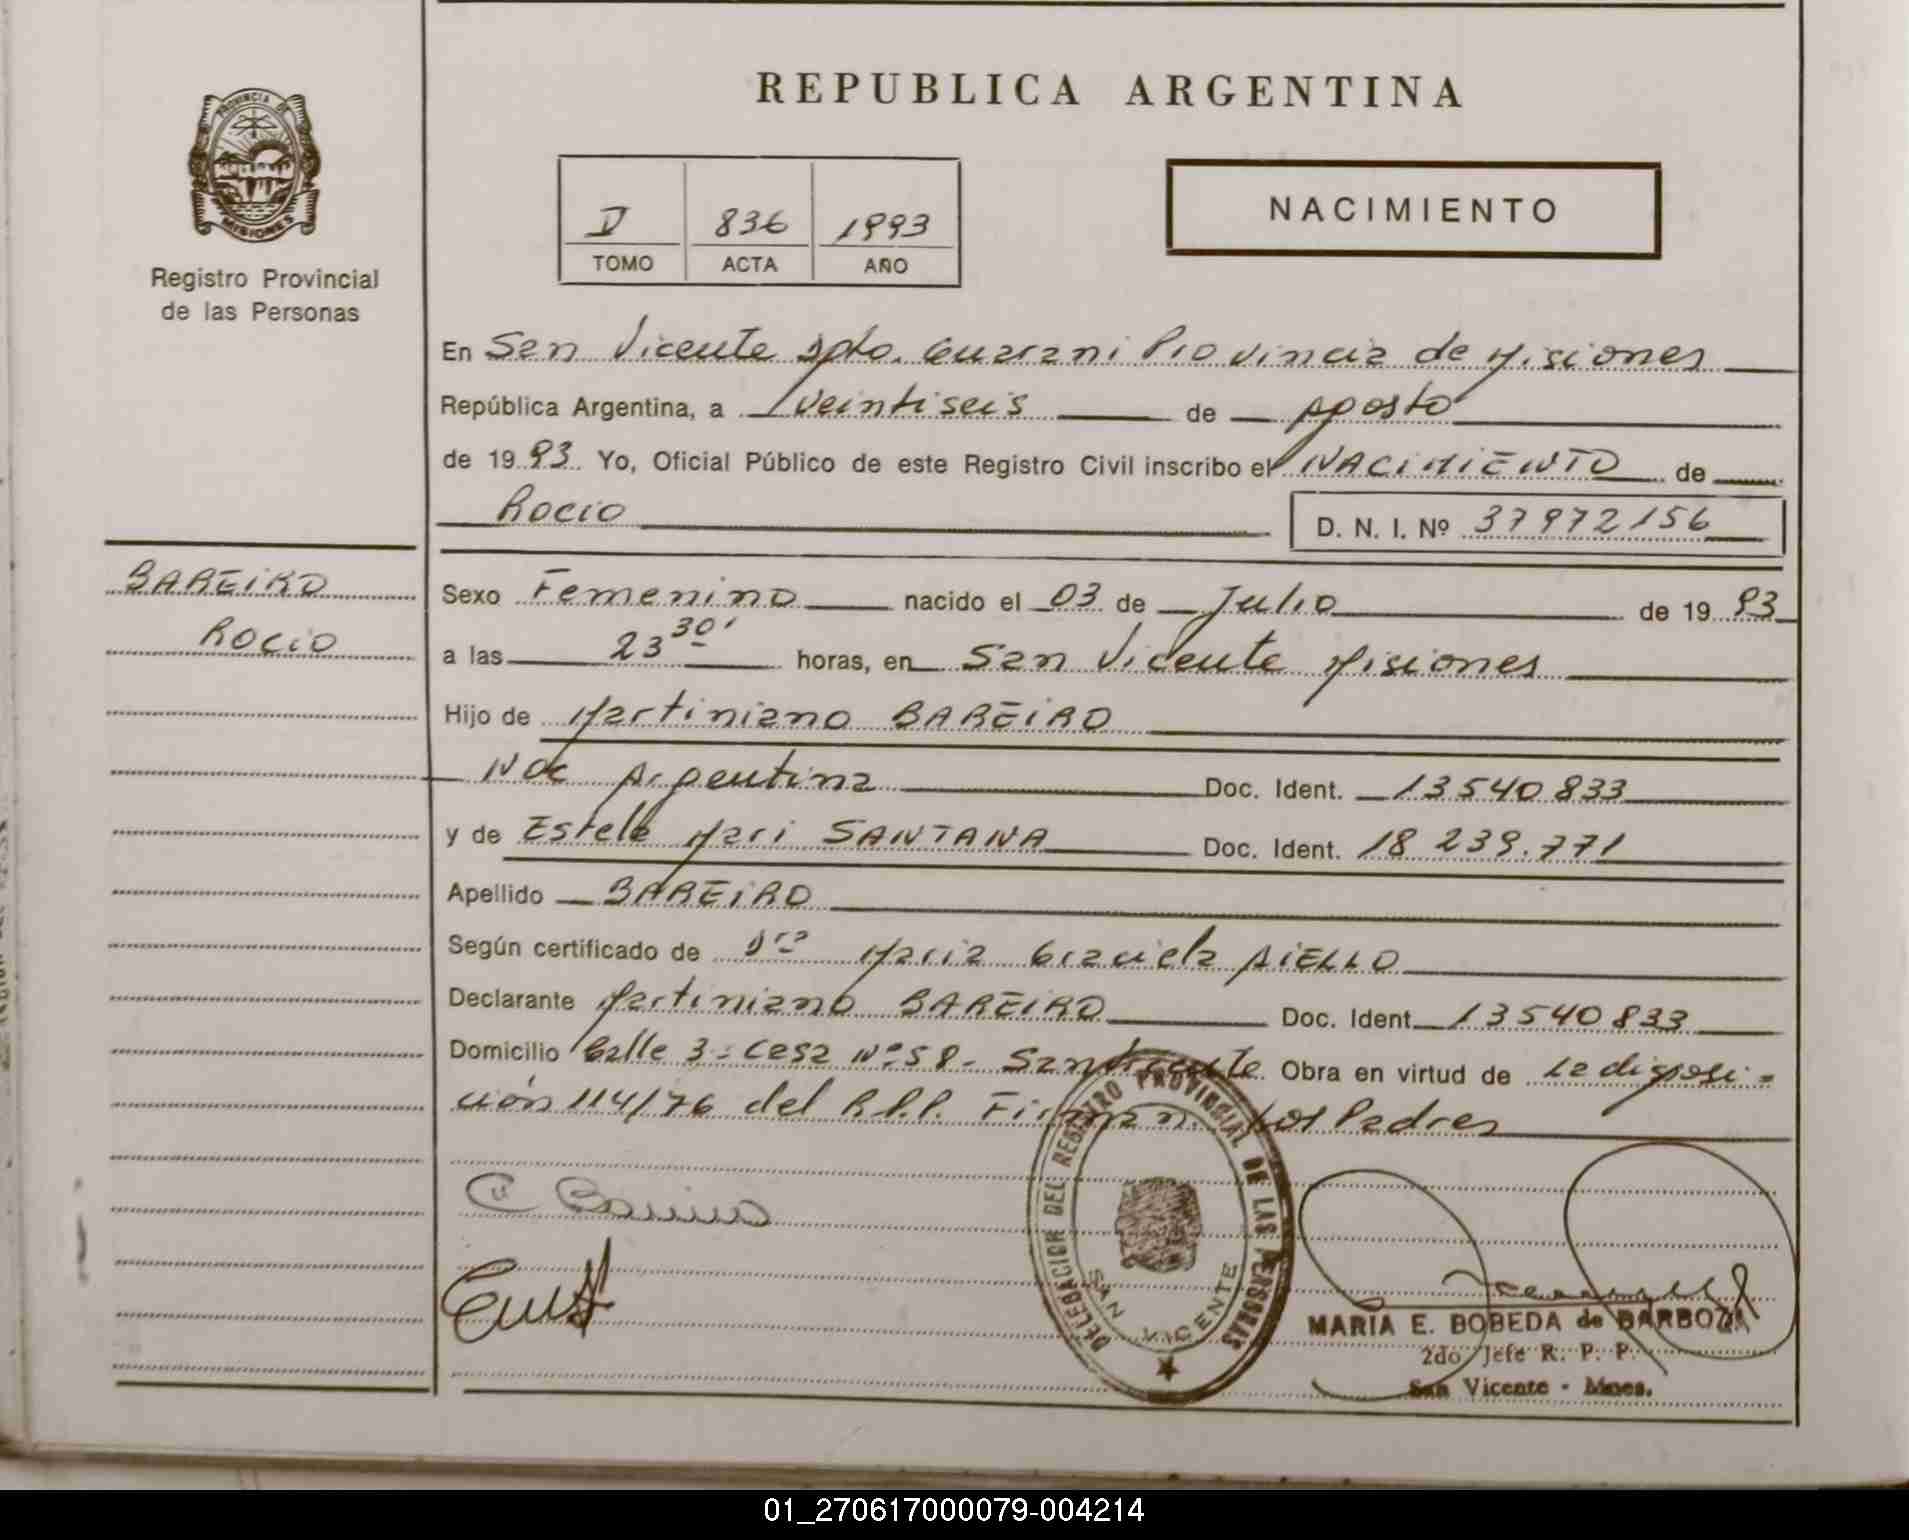 REPUBLICA ARGENTINA
PROVINCIA DE
MISIONES
Registro Provincial
de las Personas
D 836 1993
TOMO ACTA AÑO
NACIMIENTO
En San Vicente Dpto. Guarani Provincia de Misiones
República Argentina, a veintiseis de Agosto
de 1993. Yo, Oficial Público de este Registro Civil inscribo el NACIMIENTO de
Rocio
D. N. I. Nº 37972156
BAREIRO
Rocio
Sexo Femenino nacido el 03 de Julio de 1993
a las 23 30' horas, en San Vicente Misiones
Hijo de Martiniano BAREIRO
Nac Argentina Doc. Ident. 13540833
y de Estela Mari SANTANA Doc. Ident. 18 239.771
Apellido BAREIRO
Según certificado de Dra Maria Graciela AIELLO
Declarante Martiniano BAREIRO Doc. Ident. 13540833
Domicilio Calle 3 - Casa Nº 58 - San Vicente. Obra en virtud de La disposi=
ción 114/76 del R.P.P. Firman. Los Padres
DELEGACION DEL REGISTRO PROVINCIAL DE LAS PERSONAS
SAN VICENTE
MARIA E. BOBEDA de BARBOZA
2do. Jefe R. P. P.
San Vicente - Mnes.
01_270617000079-004214